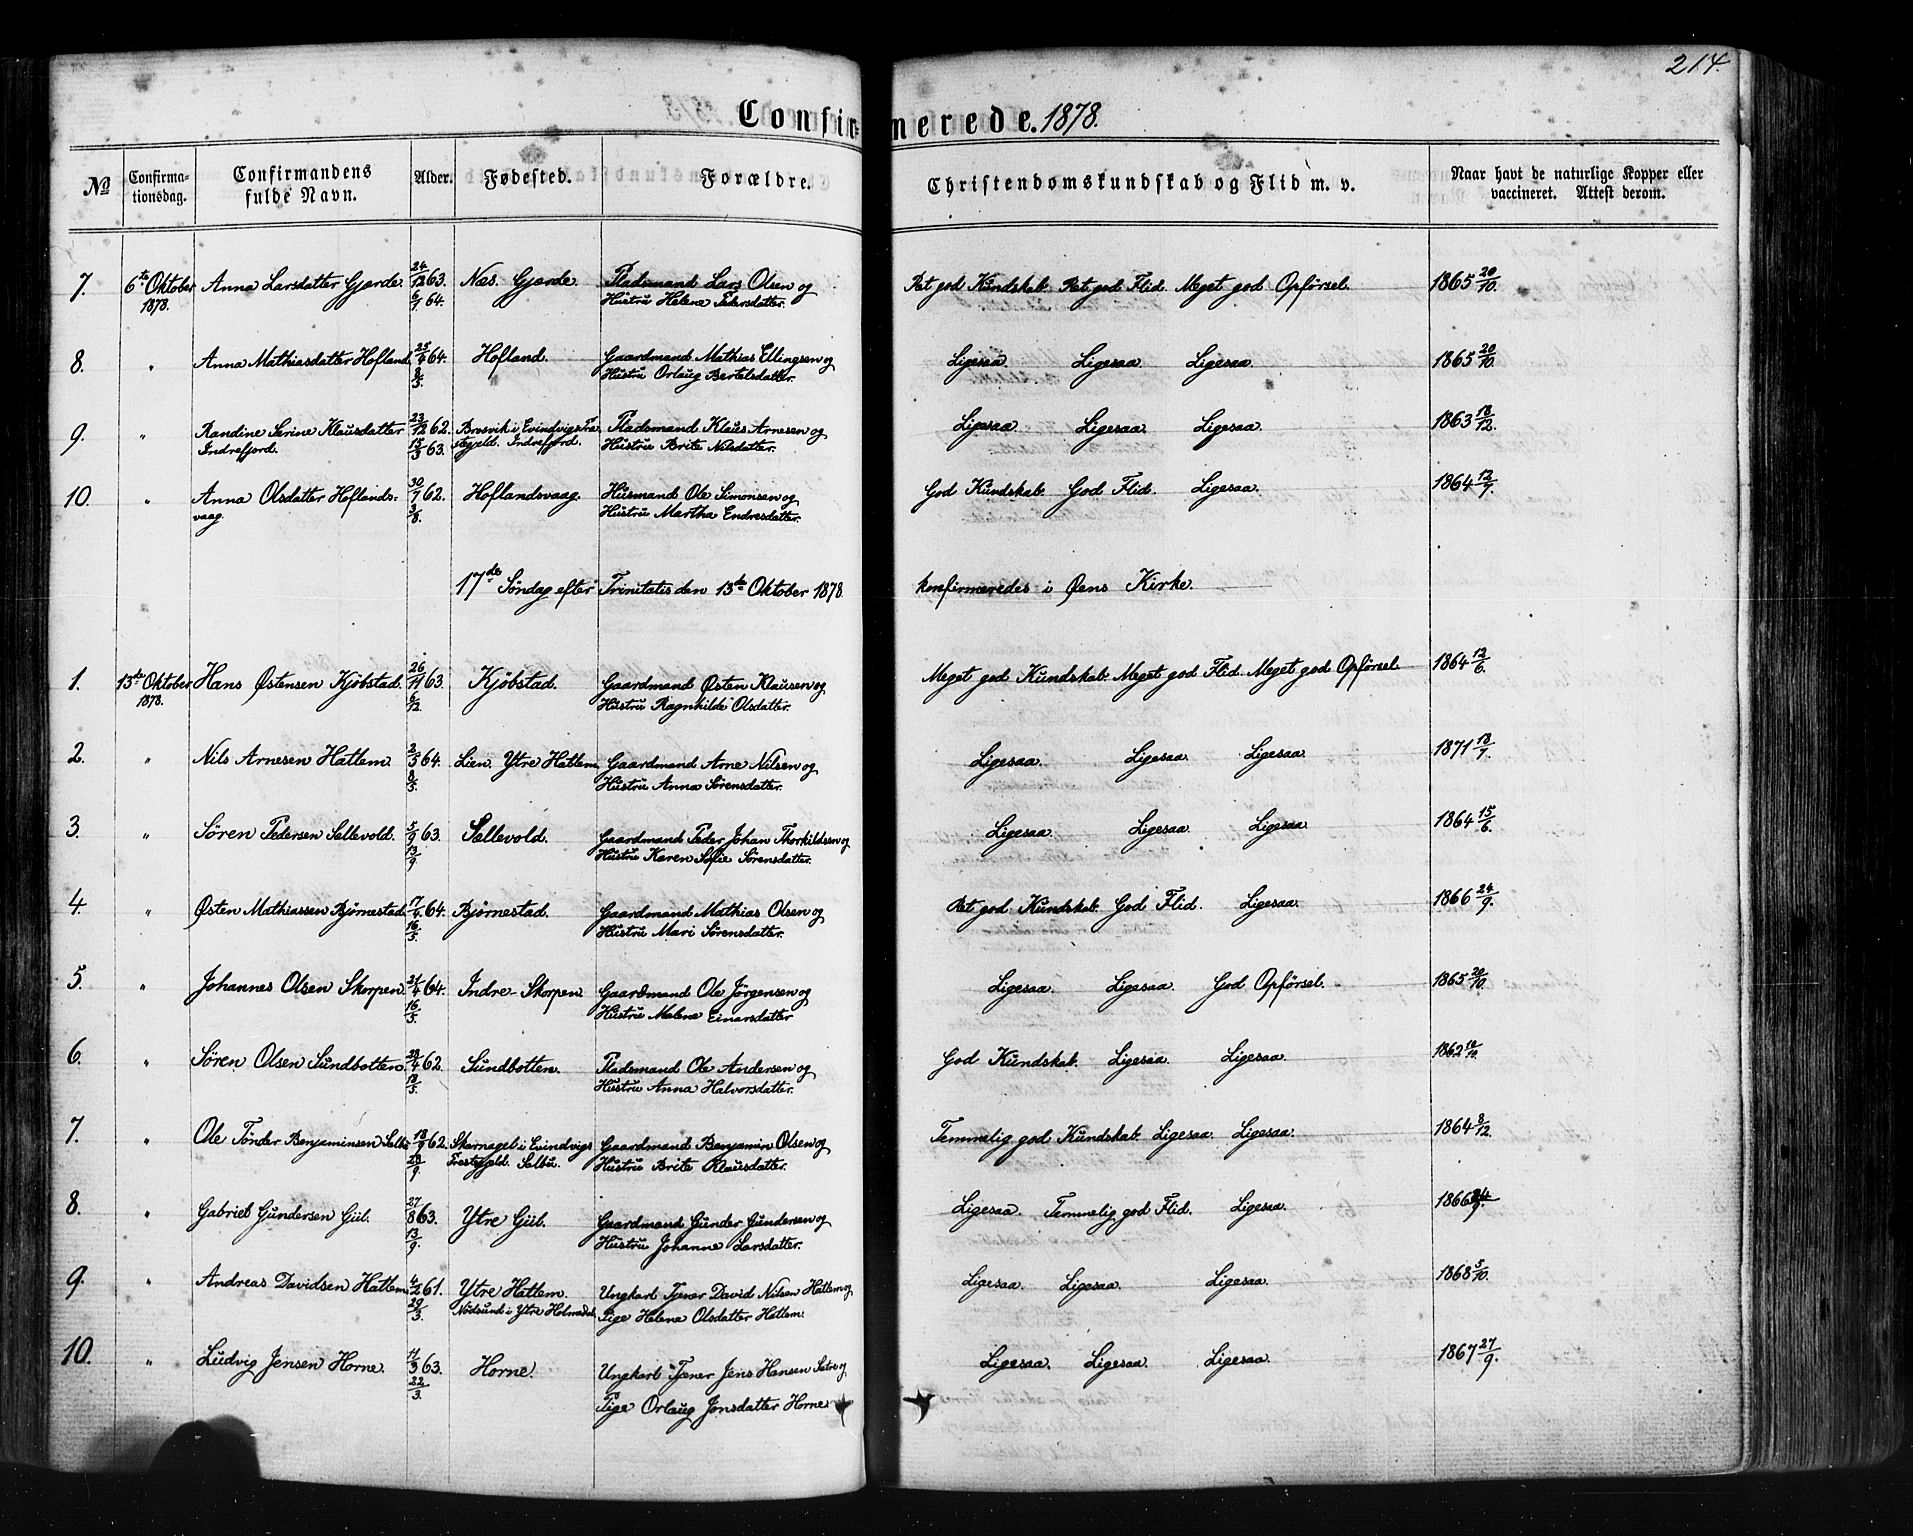 214.
Confirmerede. 1878.
No Confirmationsdag. Confirmandens fulde Navn. Alder. Fødested. Forældre. Christendomskundskab og Flid m. v. Naar havt de naturlige Kopper eller vaccineret. Attest derom.
7. 6te Oktober 1878. Anna Larsdatter Gjærde. 24/12 63. 6/1 64. Næs. Gjærde. Pladsmand Lars Olsen og Hustru Helene Pedersdatter. Ret god Kundskab. Ret god Flid. Meget god Opførsel. 1865 20/10.
8. " Anna Mathiasdatter Hofland. 25/4 64. 8/5. Hofland. Gaardmand Mathias Ellingsen og Hustru Orlaug Bertelsdatter. Ligesaa. Ligesaa. Ligesaa. 1865 20/10.
9. " Randine Serine Klausdatter Indrefjord. 23/12 62. 15/3 63. Brosvik i Evindvigs Præstegjeld. Indrefjord. Pladsmand Klaus Arnesen og Hustru Brite Nilsdatter. Ligesaa. Ligesaa. Ligesaa. 1863 18/12.
10. " Anna Olsdatter Hoflandsvaag. 30/7 62. 3/8. Hoflandsvaag. Husmand Ole Simonsen og Hustru Martha Endresdatter. God Kundskab. God Flid. Ligesaa. 1864 12/7.
17de Søndag efter Trinitatis den 13de Oktober 1878 konfirmeredes i Øens Kirke.
1. 13de Oktober 1878. Hans Østensen Kjøbstad. 26/11 63. 6/12. Kjøbstad. Gaardmand Østen Klausen og Hustru Ragnhilde Olsdatter. Meget god Kundskab. Meget god Flid. Meget god Opførsel. 1864 12/6.
2. " Nils Arnesen Hatlem. 2/5 64. 8/5. Lien. Ytre Hatlem. Gaardmand Arne Nilsen og Hustru Anna Sørensdatter. Ligesaa. Ligesaa. Ligesaa. 1871 18/7.
3. " Søren Pedersen Sellevold. 5/9 63. 13/9. Sellevold. Gaardmand Peder Johan Thorkildsen og Hustru Karen Sofie Sørensdatter. Ligesaa. Ligesaa. Ligesaa. 1864 15/6.
4. " Østen Mathiassen Bjørnestad. 17/4 64. 16/5. Bjørnestad. Gaardmand Mathias Olsen og Hustru Mari Sørensdatter. Ret god Kundskab. God Flid. Ligesaa. 1866 24/9.
5. " Johannes Olsen Skorpen. 21/4 64. 16/5. Indre-Skorpen. Gaardmand Ole Jørgensen og Hustru Malene Einarsdatter. Ligesaa. Ligesaa. God Opførsel. 1865 20/10
6. " Søren Olsen Sundbotten. /4 62. 18/5. Sundbotten. Pladsmand Ole Andersen og Hustru Anna Halvorsdatter. God Kundskab. Ligesaa. Ligesaa. 1862 /10.
7. " Ole Tønder Benjaminsen Selbu. 18/9 62. 28/9. Skornagel i Evindvigs Præstegjeld. Selbu. Gaardmand Benjamin Olsen og Hustru Brite Klausdatter. Temmelig god Kundskab. Ligesaa. Ligesaa. 1864 8/12.
8. " Gabriel Gundersen Giil. 27/8 63. 13/9. Ytre Giil. Gaardmand Gunder Gundersen og Hustru Johanne Larsdatter. Ligesaa. Temmelig god Flid. Ligesaa. 1866 24/9.
9. " Andreas Davidsen Hatlem. 4/2 61. 29/3. Ytre Hatlem. Nødsund i Ytre Holmedal. Ungkarl Tjener David Nilsen Hatlem og Pige Helene Olsdatter Hatlem. Ligesaa. Ligesaa. Ligesaa. 1868 5/10.
10. " Ludvig Jensen Horne. 11/3 63. 22/3. Horne. Ungkarl Tjener Jens Hansen og Pige Orlaug Jonsdatter Horne. Ligesaa. Ligesaa. Ligesaa. 1867 27/9.